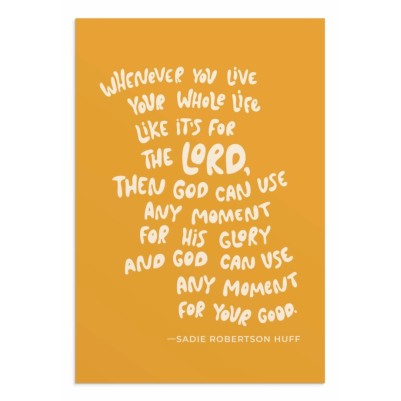 WHENEVER YOU LIVE
YOUR WHOLE LIFE
LIKE IT'S FOR
THE LORD,
THEN GOD CAN USE
ANY MOMENT
FOR HIS GLORY
AND GOD CAN USE
ANY MOMENT
FOR YOUR GOOD.
—SADIE ROBERTSON HUFF